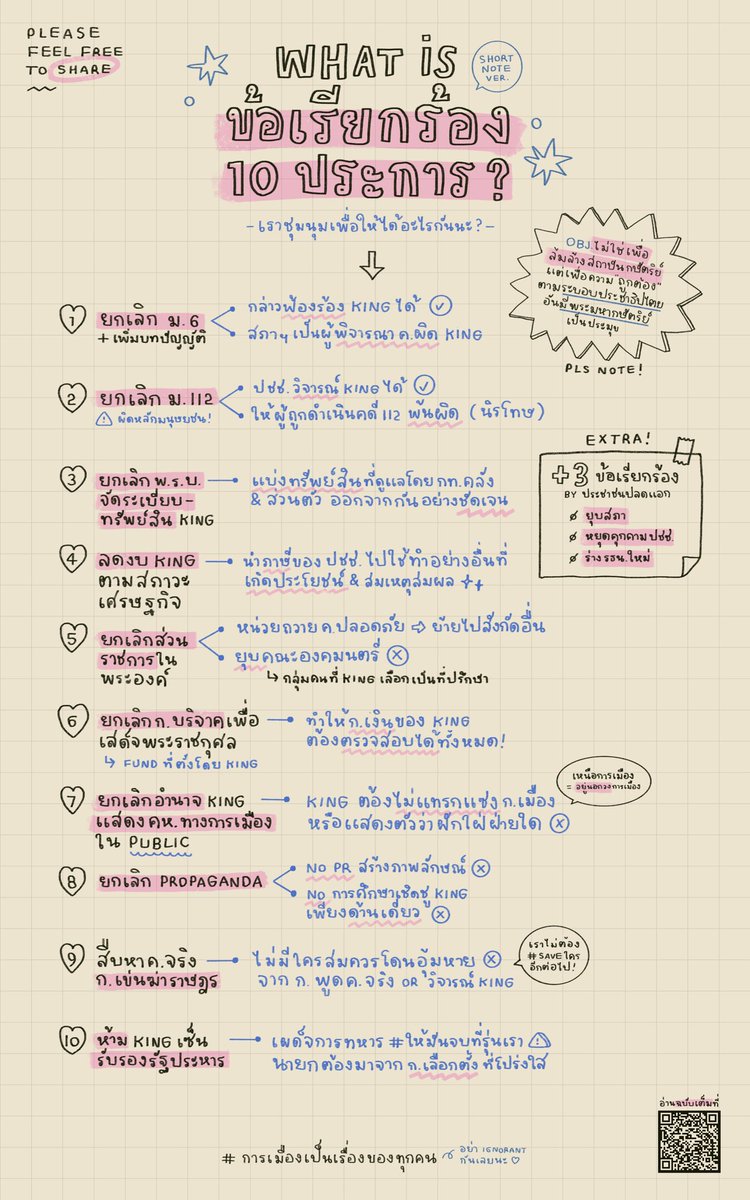 PLEASE
FEEL FREE
TO SHARE
WHAT IS
SHORT
NOTE
VER.
ข้อเรียกร้อง
10 ประการ?
-เราชุมนุมเพื่อให้ได้อะไรกันนะ?-
OBJ. ไม่ใช่เพื่อ
ล้มล้างสถาบันกษัตริย์
แต่เพื่อความ "ถูกต้อง"
ตามระบอบประชาธิปไตย
อันมีพระมหากษัตริย์
เป็นประมุข
PLS NOTE!
1 ยกเลิก ม.6
+ เพิ่มบทบัญญัติ
กล่าวฟ้องร้อง KING ได้
สภาฯ เป็นผู้พิจารณา ค.ผิด KING
2 ยกเลิก ม.112
ผิดหลักมนุษยชน!
ปชช. วิจารณ์ KING ได้
ให้ผู้ถูกดำเนินคดี 112 พ้นผิด (นิรโทษ)
EXTRA!
+3 ข้อเรียกร้อง
BY ประชาชนปลดแอก
ยุบสภา
หยุดคุกคามปชช.
ร่างรธน.ใหม่
3 ยกเลิก พ.ร.บ.
จัดระเบียบ-
ทรัพย์สิน KING
แบ่งทรัพย์สินที่ดูแลโดย กท.คลัง
& ส่วนตัว ออกจากกันอย่างชัดเจน
4 ลดงบ KING
ตามสภาวะ
เศรษฐกิจ
นำภาษีของ ปชช. ไปใช้ทำอย่างอื่นที่
เกิดประโยชน์ & สมเหตุสมผล
5 ยกเลิกส่วน
ราชการใน
พระองค์
หน่วยถวาย ค.ปลอดภัย ⇨ ย้ายไปสังกัดอื่น
ยุบคณะองคมนตรี
↳ กลุ่มคนที่ KING เลือกเป็นที่ปรึกษา
6 ยกเลิก ก.บริจาคเพื่อ
เสด็จพระราชกุศล
↳ FUND ที่ตั้งโดย KING
ทำให้ ก.เงินของ KING
ต้องตรวจสอบได้ทั้งหมด!
7 ยกเลิกอำนาจ KING
แสดง คห.ทางการเมือง
ใน PUBLIC
KING ต้องไม่แทรกแซง ก.เมือง
หรือแสดงตัวว่าฝักใฝ่ฝ่ายใด
เหนือการเมือง
= อยู่นอกวงการเมือง
8 ยกเลิก PROPAGANDA
NO PR สร้างภาพลักษณ์
NO การศึกษาเชิดชู KING
เพียงด้านเดียว
9 สืบหา ค.จริง
ก.เข่นฆ่าราษฎร
ไม่มีใครสมควรโดนอุ้มหาย
จาก ก. พูด ค.จริง OR วิจารณ์ KING
เราไม่ต้อง
#SAVEใคร
อีกต่อไป!
10 ห้าม KING เซ็น
รับรองรัฐประหาร
เผด็จการทหาร #ให้มันจบที่รุ่นเรา
นายกต้องมาจาก ก.เลือกตั้ง ที่โปร่งใส
อ่านฉบับเต็มที่
# การเมืองเป็นเรื่องของทุกคน
อย่า IGNORANT
กันเลยนะ ♡